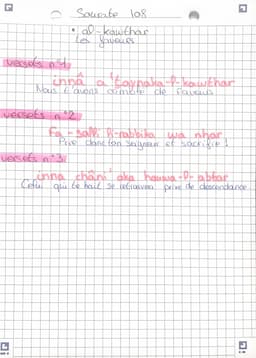 Sourate 108
• al-kawthar
Les faveurs
versets n°1
innâ a'taynaka-l-kawthar
Nous t'avons comblé de faveurs
versets n°2
Fa-salli li-rabbika wa nhar
Prie donc ton seigneur et sacrifie !
versets n°3
inna châni'aka houwa-l-abtar
Celui qui te hait se retrouvera privé de descendance